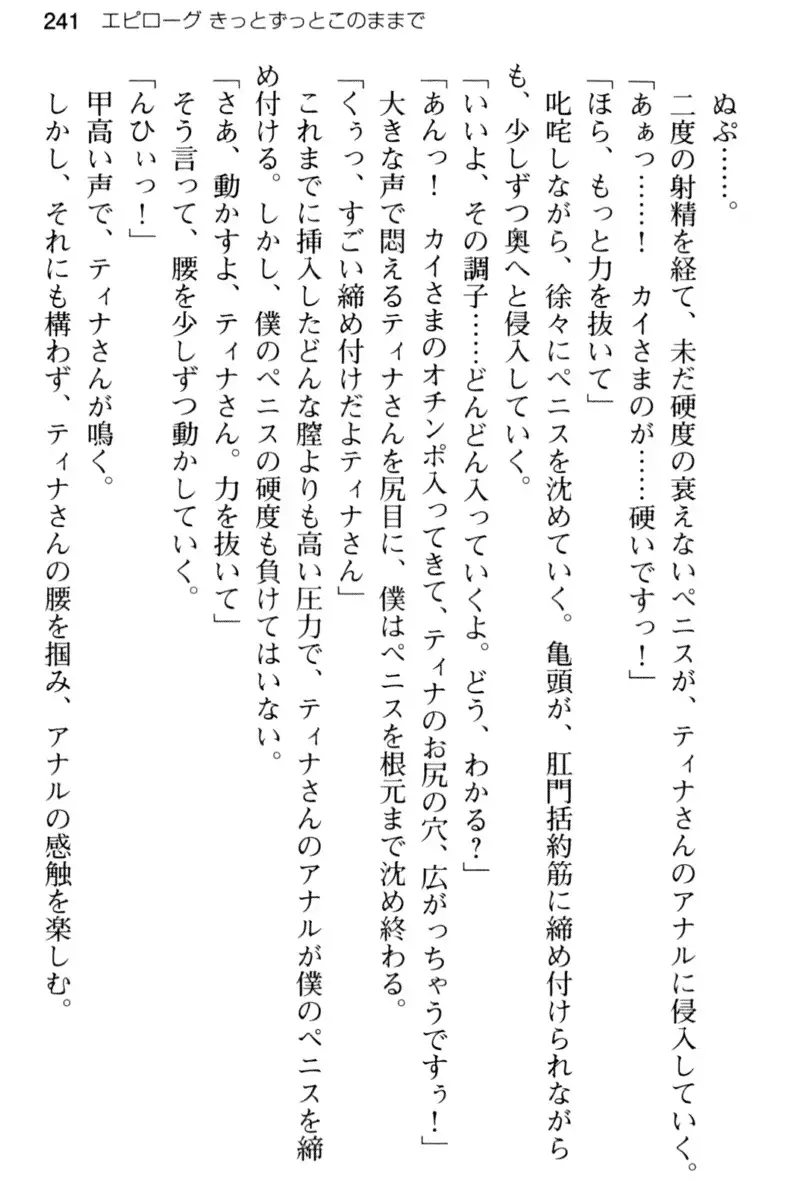 241 エピローグ きっとずっとこのままで
ぬぷ……。
二度の射精を経て、未だ硬度の衰えないペニスが、ティナさんのアナルに侵入していく。
「あぁっ……！　カイさまのが……硬いですっ！」
「ほら、もっと力を抜いて」
叱咤しながら、徐々にペニスを沈めていく。亀頭が、肛門括約筋に締め付けられながら
も、少しずつ奥へと侵入していく。
「いいよ、その調子……どんどん入っていくよ。どう、わかる？」
「あんっ！　カイさまのオチンポ入ってきて、ティナのお尻の穴、広がっちゃうですぅ！」
大きな声で悶えるティナさんを尻目に、僕はペニスを根元まで沈め終わる。
「くぅっ、すごい締め付けだよティナさん」
これまでに挿入したどんな膣よりも高い圧力で、ティナさんのアナルが僕のペニスを締
め付ける。しかし、僕のペニスの硬度も負けてはいない。
「さあ、動かすよ、ティナさん。力を抜いて」
そう言って、腰を少しずつ動かしていく。
「んひぃっ！」
甲高い声で、ティナさんが鳴く。
しかし、それにも構わず、ティナさんの腰を掴み、アナルの感触を楽しむ。